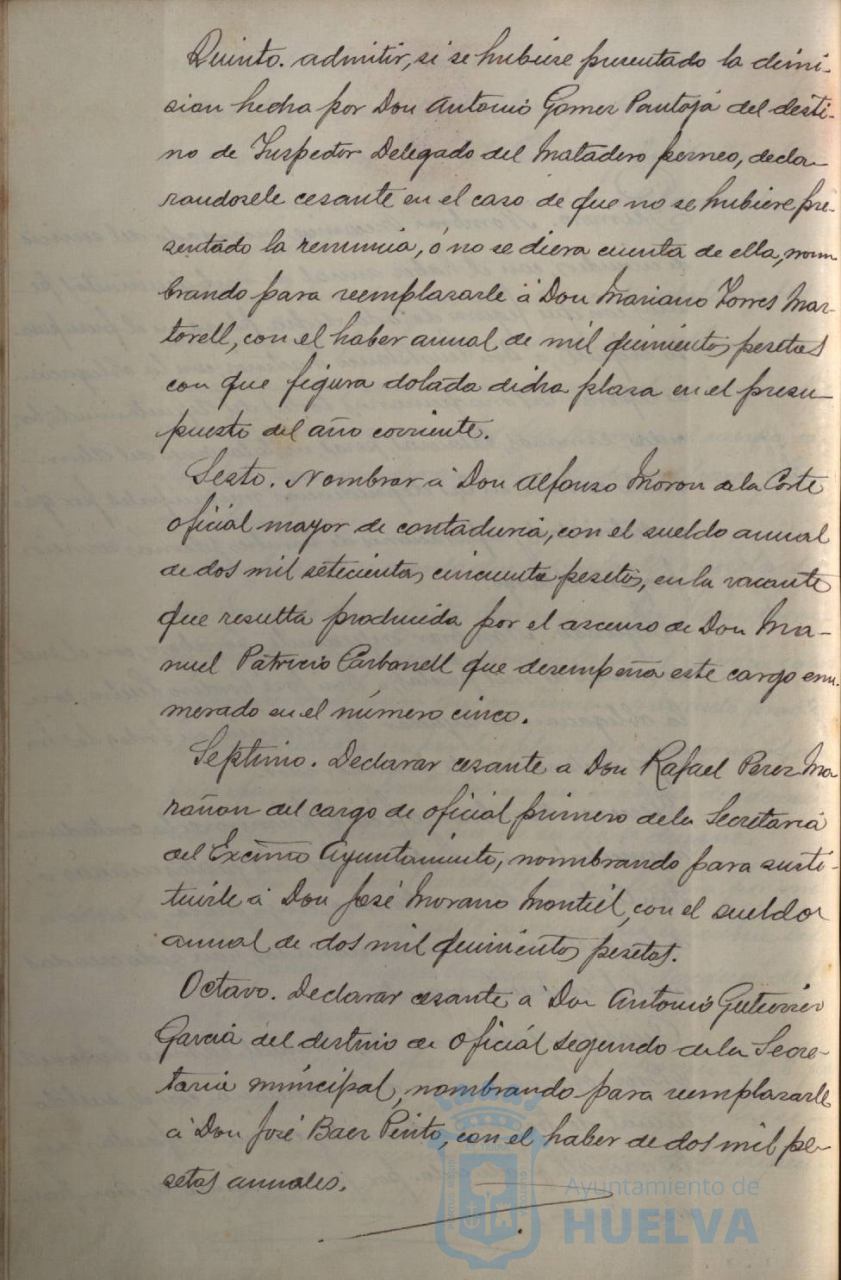 Quinto. admitir, si se hubiese presentado la dimi-
sion hecha por Don Antonio Gomez Pantoja del desti-
no de Inspector Delegado del Matadero porneo, decla-
randosele cesante en el caso de que no se hubiere pre-
sentado la renuncia, ó no se diera cuenta de ella, nom
brando para reemplazarle á Don Mariano Torres Mar-
torell, con el haber annal de mil quinientos pesetas
con que figura dotada dicha plaza en el presu-
puesto del año corriente.
Sesto. Nombrar á Don Alfonso Moron de la Corte
oficial mayor de contaduria, con el sueldo annal
de dos mil setecientas cincuenta pesetas, en la vacante
que resulta producida por el ascenso de Don Ma-
nuel Patricio Carbonell que desempeña este cargo enu-
merado en el número cinco.
Septimo. Declarar cesante a Don Rafael Perez Ma
rañon del cargo de oficial primero de la Secretaria
del Excimo Ayuntamiento, nombrando para susti-
tuirle á Don José Morano Montiel, con el sueldo
annal de dos mil quinientos pesetas.
Octavo. Declarar cesante á Don Antonio Gutierrez
Garcia del destino de oficial segundo de la Secre-
taria municipal, nombrando para reemplazarle
á Don José Baez Pinto, con el haber de dos mil pe-
setas annales.
Ayuntamiento de
HUELVA